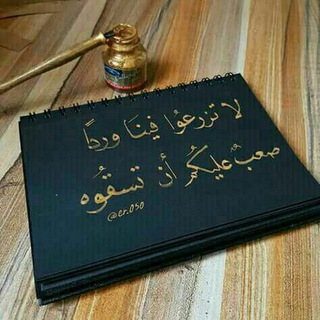 لا تزرعُوا فينَا ورداً
صعبٌ عليكُم أن تسقُوه
@er.050